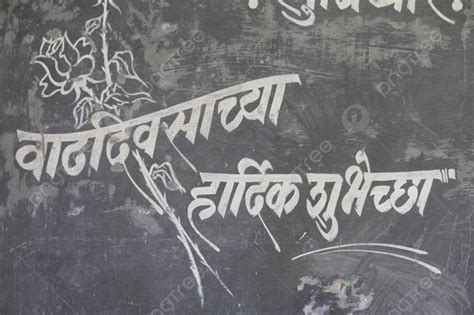 वाढदिवसाच्या
हार्दिक शुभेच्छा